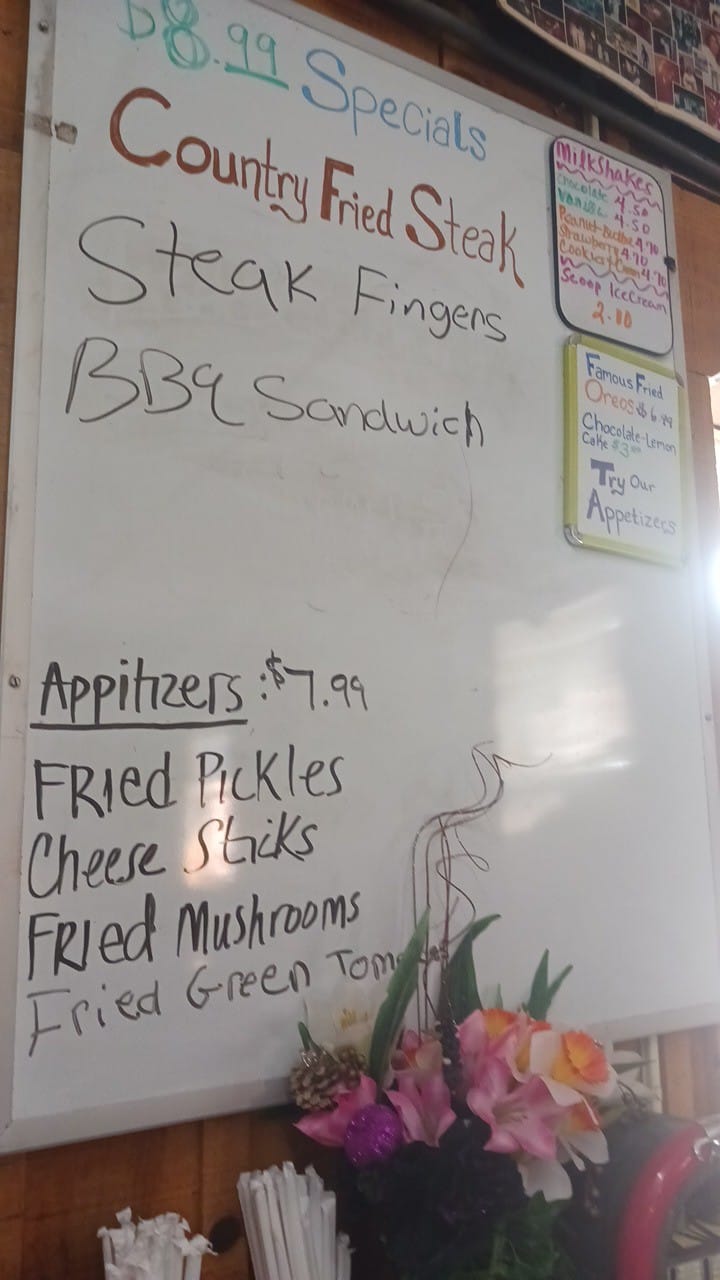 $8.99 Specials
Country Fried Steak
Steak Fingers
BBq Sandwich
Appitizers:$7.99
FRied Pickles
Cheese Sticks
FRIed Mushrooms
Fried Green
Milkshakes
Chocolate 4.50
Vanilla 4.50
Peanut-Butter 4.70
Strawberry 4.70
Cookies+Cream 4.70
Scoop IceCream
2.10
Famous Fried
Oreos $6.99
Chocolate-Lemon
Cake
Try Our
Appetizers